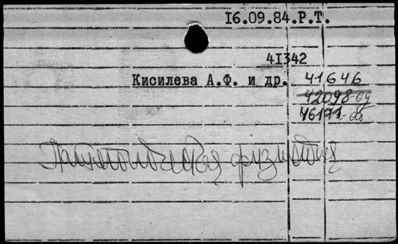 16.09.84.Р.Т.
41342
Кисилева А.Ф. и др. 41646
42098-04
46171-06
Патологическая физиология